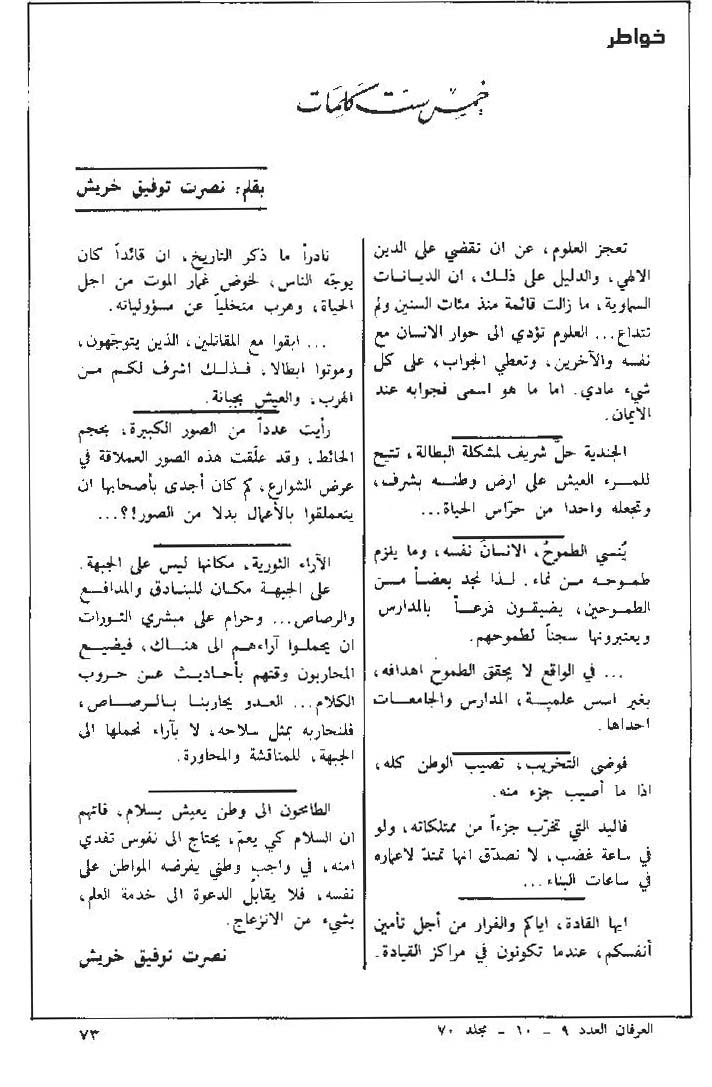 خواطر
خمس ست كلمات
بقلم: نصرت توفيق خريش
تعجز العلوم، عن ان تقضي على الدين
الالهي، والدليل على ذلك، ان الديانات
السماوية، ما زالت قائمة منذ مئات السنين ولم
تتداع... العلوم تؤدي الى حوار الانسان مع
نفسه والآخرين، وتعطي الجواب، على كل
شيء مادي. اما ما هو اسمى فجوابه عند
الايمان.
الجندية حلّ شريف لمشكلة البطالة، تتيح
للمرء العيش على ارض وطنه بشرف،
وتجعله واحدا من حرّاس الحياة...
يُنسي الطموحُ، الانسانَ نفسه، وما يلزم
طموحه من نماء. لذا نجد بعضاً من
الطموحين، يضيقون ذرعاً بالمدارس
ويعتبرونها سجناً لطموحهم.
... في الواقع لا يحقق الطموح اهدافه،
بغير اسس علمية، المدارس والجامعات
احداها.
فوضى التخريب، تصيب الوطن كله،
اذا ما أصيب جزء منه.
فاليد التي تخرّب جزءاً من ممتلكاته، ولو
في ساعة غضب، لا نصدّق انها تمتدّ لاعماره
في ساعات البناء...
ايها القادة، اياكم والفرار من أجل تأمين
أنفسكم، عندما تكونون في مراكز القيادة.
نادراً ما ذكر التاريخ، ان قائداً كان
يوجّه الناس، لخوض غمار الموت من اجل
الحياة، وهرب متخلياً عن مسؤولياته.
... ابقوا مع المقاتلين، الذين يتوجّهون،
وموتوا ابطالا، فذلك اشرف لكم من
الهرب، والعيش بجبانة.
رأيت عدداً من الصور الكبيرة، بحجم
الحائط، وقد علّقت هذه الصور العملاقة في
عرض الشوارع، كم كان أجدى بأصحابها ان
يتعملقوا بالأعمال بدلا من الصور!؟...
الآراء الثورية، مكانها ليس على الجبهة.
على الجبهة مكان للبنادق والمدافع
والرصاص... وحرام على مبشري الثورات
ان يحملوا آراءهم الى هناك، فيضيع
المحاربون وقتهم بأحاديث عن حروب
الكلام... العدو يحاربنا بالرصاص،
فلنحاربه بمثل سلاحه، لا بآراء نحملها الى
الجبهة، للمناقشة والمحاورة.
الطامحون الى وطن يعيش بسلام، فاتهم
ان السلام كي يعمّ، يحتاج الى نفوس تفدي
امنه، في واجب وطني يفرضه المواطن على
نفسه، فلا يقابل الدعوة الى خدمة العلم،
بشيء من الانزعاج.
نصرت توفيق خريش
العرفان العدد ٩ - ١٠ - مجلد ٧٠
٧٣